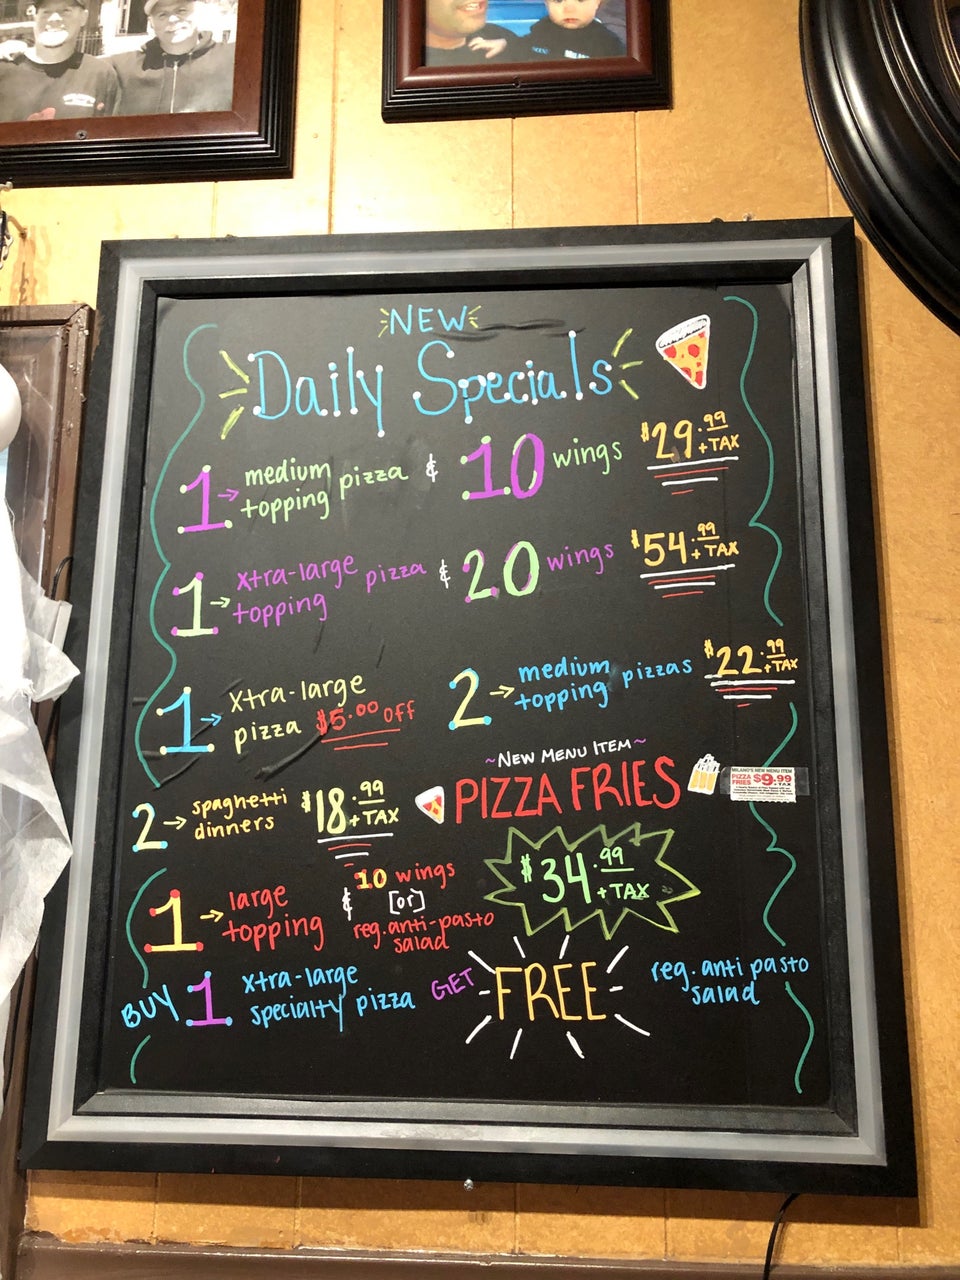 NEW
Daily Specials
1 → medium topping pizza & 10 wings $29.99 + TAX
1 → xtra-large topping pizza & 20 wings $54.99 + TAX
1 → xtra-large pizza $5.00 off
2 → medium topping pizzas $22.99 + TAX
~NEW MENU ITEM~
PIZZA FRIES
MILANO'S NEW MENU ITEM
PIZZA FRIES $9.99 + TAX
2 → spaghetti dinners $18.99 + TAX
1 → large topping & 10 wings [or] reg. anti-pasto salad $34.99 + TAX
BUY 1 xtra-large specialty pizza GET FREE reg. anti pasto salad